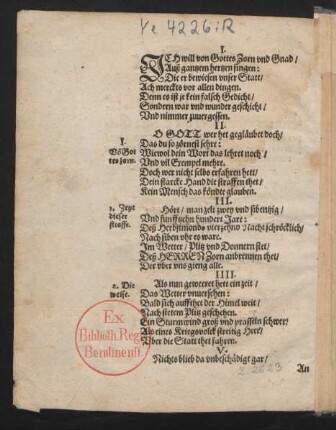 Ye 4226:R
I.
ICH will von Gottes Zorn vnd Gnad /
Auß gantzem hertzen singen :
Die er bewiesen vnser Statt /
Ach merckts vor allen dingen.
Denn es ist je kein falsch Gedicht /
Sondern war vnd wunder geschicht /
Vnd nimmer zuuergessen.
II.
O GOTT wer het geglåubet doch /
I. Das du so zörnest sehre :
Vō Got Wiewol dein Wort das lehret noch /
tes zorn. Vnd vil Exempel mehre.
Doch wer nicht selbs erfahren hett /
Dein starcke Hand die straffen thet /
Kein Mensch das köndte glauben.
III.
1. Zeyt Hört / man zelt zwey vnd sibentzig /
dieser Vnd funfftzehn hundert Jare :
straffe. Deß Herbstmonds vierzehnd Nacht schröcklich /
Nach siben vhr es ware.
Im Wetter / Plitz vnd Donnern stet /
Deß HERREN Zorn anbrennen thet /
Der vber vns gieng alle.
IIII.
2. Die Als nun gewetteret hett ein zeit /
weise. Das Wetter vnuersehen :
Bald sich auffthet der Himel weit /
Nach stetem Plitz geschehen.
Ein Sturmwind groß vnd prasseln schwer /
Als eines Kriegsvolck streng Heer /
Vber die Statt thet fahren.
V.
Nichts blieb da vnbeschådigt gar /
An
Ex
Biblioth. Reg.
Berolinensi.